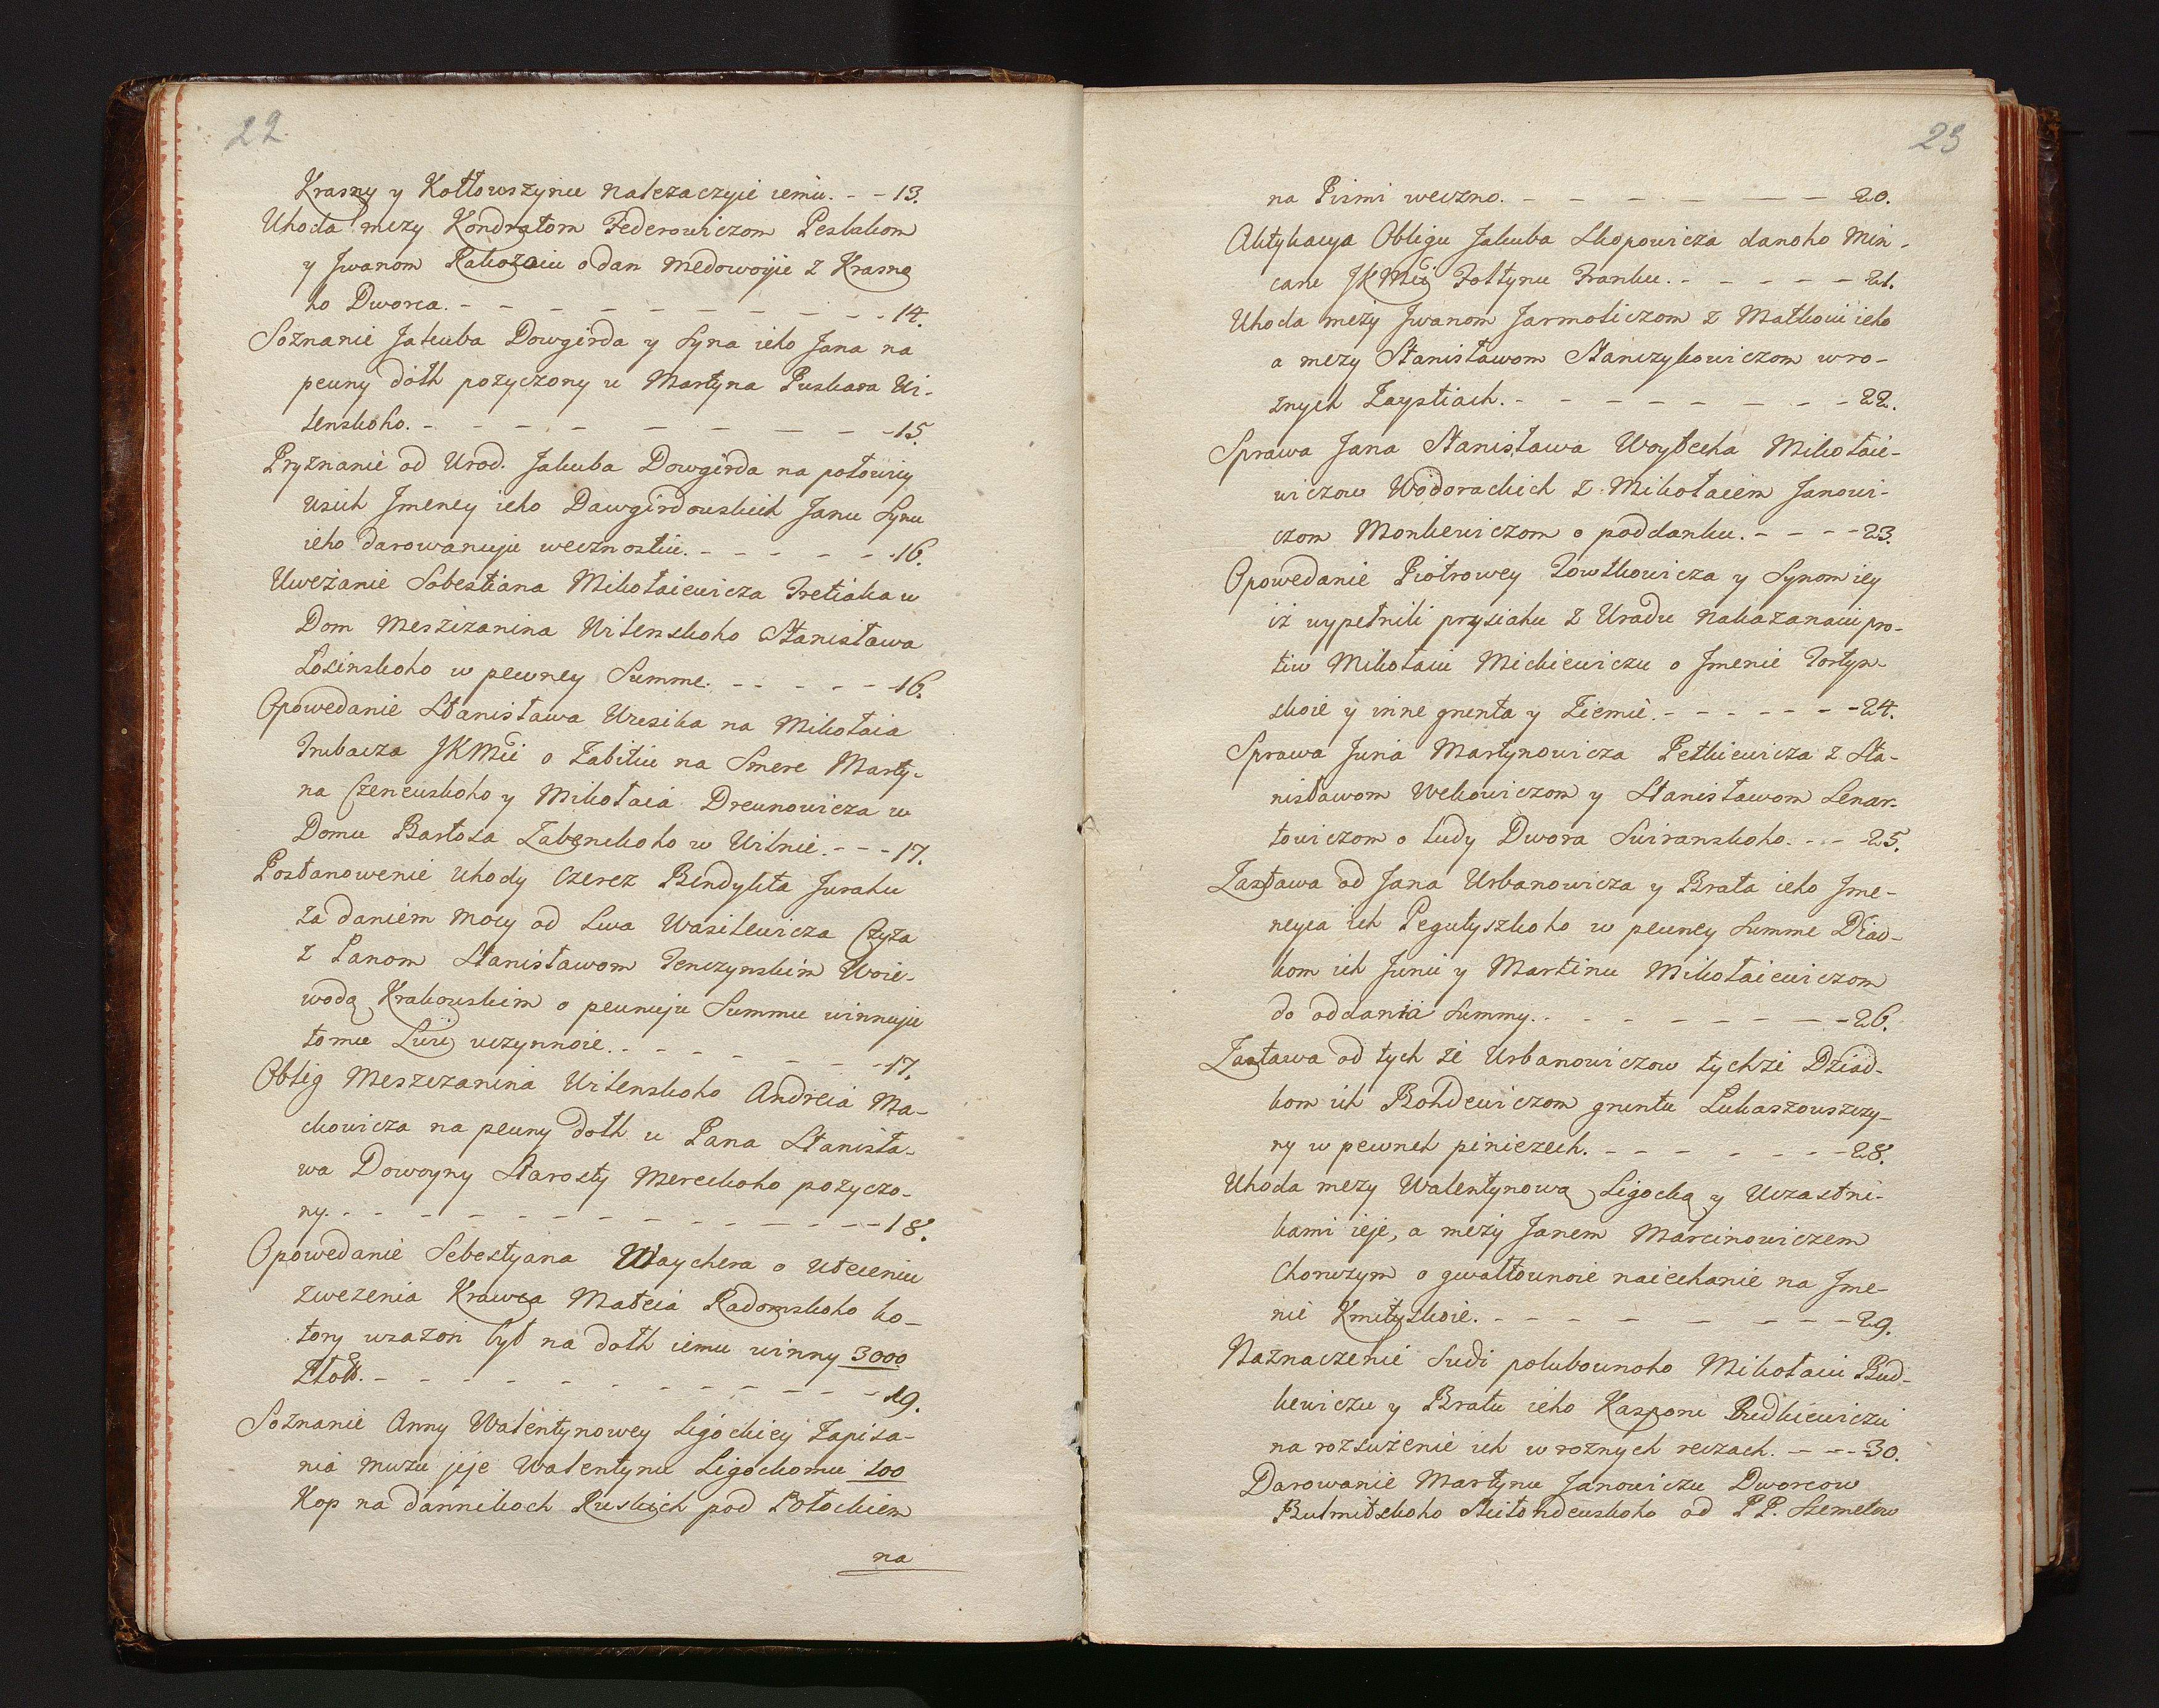 22
Krasny y Kottowszynu należaczyie iemu. - - 13.
Uhoda mezy Kondratom Federowiczom Peslakom
y Jwanom Rahozoiu o dan medowoyie z Krasne
ho Dworca. - - - - - - - - - 14.
Soznanie Jakuba Dowgirda y Syna ieho Jana na
pewny dołh pozyczony u Martyna Puskara Wi-
lenskoho. - - - - - - - - - 15.
Pryznanie od Urod. Jakuba Dowgirda na połowicy
usich Jmeney ieho Dawgirdouskich Janu Synu
ieho darowanuju wecznostiu. - - - - - - 16.
Uweżanie Sobestiana Mikołaiewicza Tretiaka w
Dom Meszczanina Wilenskoho Stanisława
Łosinskoho w pewney Summe. - - - - - 16.
Opowedanie Stanisława Uresika na Mikołaia
Trubacza JKMci o Zabitiu na Smere Marty-
na Czeneuskoho y Mikołaia Dreunowicza w
Domu Bartosa Zabenskoho w Wilnie. - - - 17.
Postanowenie uhody czerez Bendykta Jurahu
za daniem mocy od Lwa Wasilewicza Czyża
z Panom Stanisławom Tenczynskim Woie-
wodą Krakouskim o peunuju Summu winnuju
tomu Lwu uczynnoie. - - - - - - - 17.
Oblig Meszczanina Wilenskoho Andreia Ma-
ckowicza na peuny dołh u Pana Stanisła-
wa Dowoyny Starosty Mereckoho pożyczo-
ny. - - - - - - - - - - - 18.
Opowedanie Sebestyana Waychera o utecieniu
z wezenia Krawca Mateia Radomskoho ko-
tory wsazon był na dołh iemu winny 3000
Złott. - - - - - - - - - - 19.
Soznanie Anny Walentynowey Ligockiey Zapisa-
nia mużu jeje Walentynu Ligockomu 100
Kop na dannikoch Ruskich pod Połockiem
na
23
na Pismi weczno. - - - - - - - 20.
Aktykacya Obligu Jakuba Skopowicza danoho Min-
caru JKMci Foltynu Franku. - - - - - 21.
Uhoda meży Jwanom Jarmoliczom z Matkoiu ieho
a mezy Stanisławom Stanczykowiczom w ro-
żnych Zaystiach. - - - - - - - - 22.
Sprawa Jana Stanisława Woytecha Mikołaie-
wiczow Wodorackich z Mikołaiem Janowi-
czom Monkewiczom o poddanku. - - - - 23.
Opowedanie Piotrowey Towtkowicza y Synom iey
iż wypełnili prysiahu z Uradu nakazanaiu pro-
tiw Mikołaiu Mickiewiczu o Jmenie Tortyn-
skoie y inne grunta y Ziemie. - - - - - - - 24.
Sprawa Juria Martynowicza Petkiewicza z Sta-
nisławom Wekowiczom y Stanisławom Lenar-
towiczom o ludy Dwora Swiranskoho. - - - 25.
Zastawa od Jana Urbanowicza y Brata ieho Jme-
neyca ich Pegutyszkoho w peuney Summe Dziad-
kom ich Juriu y Martinu Mikołaiewiczom
do oddania Summy. - - - - - - - - 26.
Zastawa od tych że Urbanowiczow tychże Dziad-
kom ich Bohdewiczom gruntu Lukaszouszczy-
ny w pewneh pieniezech. - - - - - - - 28.
Uhoda mezy Walentynową Ligocką y Uczastni-
kami ieje, a meży Janem Marcinowiczem
Chorużym o gwałtounoie naiechanie na Jme-
nie Kmityskoie. - - - - - - - - 29.
Naznaczenie Sudi połubounoho Mikołaiu Bud-
kewiczu y Bratu ieho Kasporu Budkiewiczu
na rozsużenie ich w roznych reczach. - - - 30.
Darowanie Martynu Janowiczu Dworcow
Butmitskoho Skitondeuskoho od PP. Szemetow